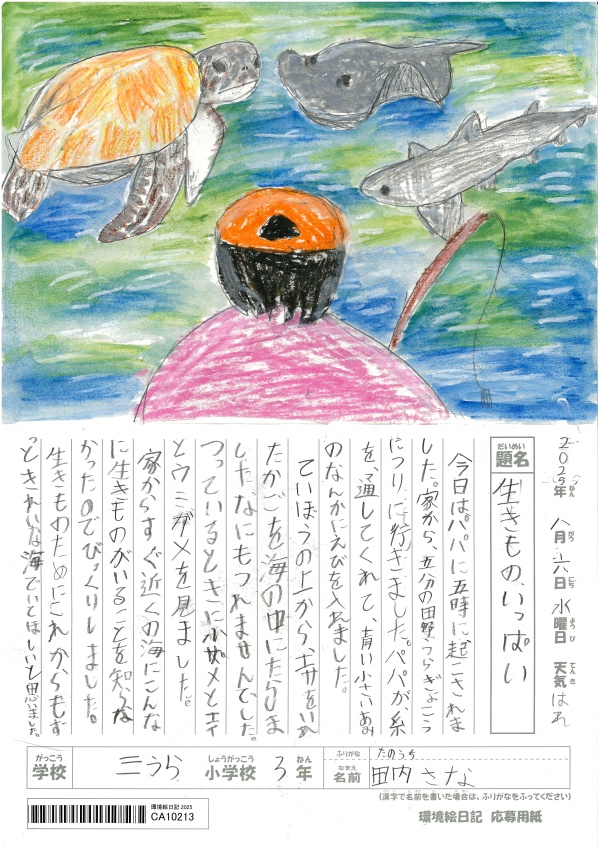 2025年 八月 六日 水曜日 天気 はれ
ねん がつ にち ようび てんき
だいめい
題名 生きもの、いっぱい
今日は、パパに五時に起こされま
した。家から、五分の田野うらぎょこう
につりに行きました。パパが、糸
を、通してくれて、青い小さいあみ
のなんかにえびを入れました。
ていぼうの上から、エサをいれ
たかごを海の中にたらしま
した。なにもつれませんでした。
つっているときに小ザメとエイ
とウミガメを見ました。
家からすぐ近くの海にこんな
に生きものがいることを知らな
かったのでびっくりしました。
生きもののためにこれからもず
っときれいな海でいてほしいと思いました。
がっこう しょうがっこう ねん
学校 三うら 小学校 3年
ふりがな たのうち
なまえ
名前 田内 さな
(漢字で名前を書いた場合は、ふりがなをふってください)
環境絵日記 2025
CA10213
環境絵日記 応募用紙